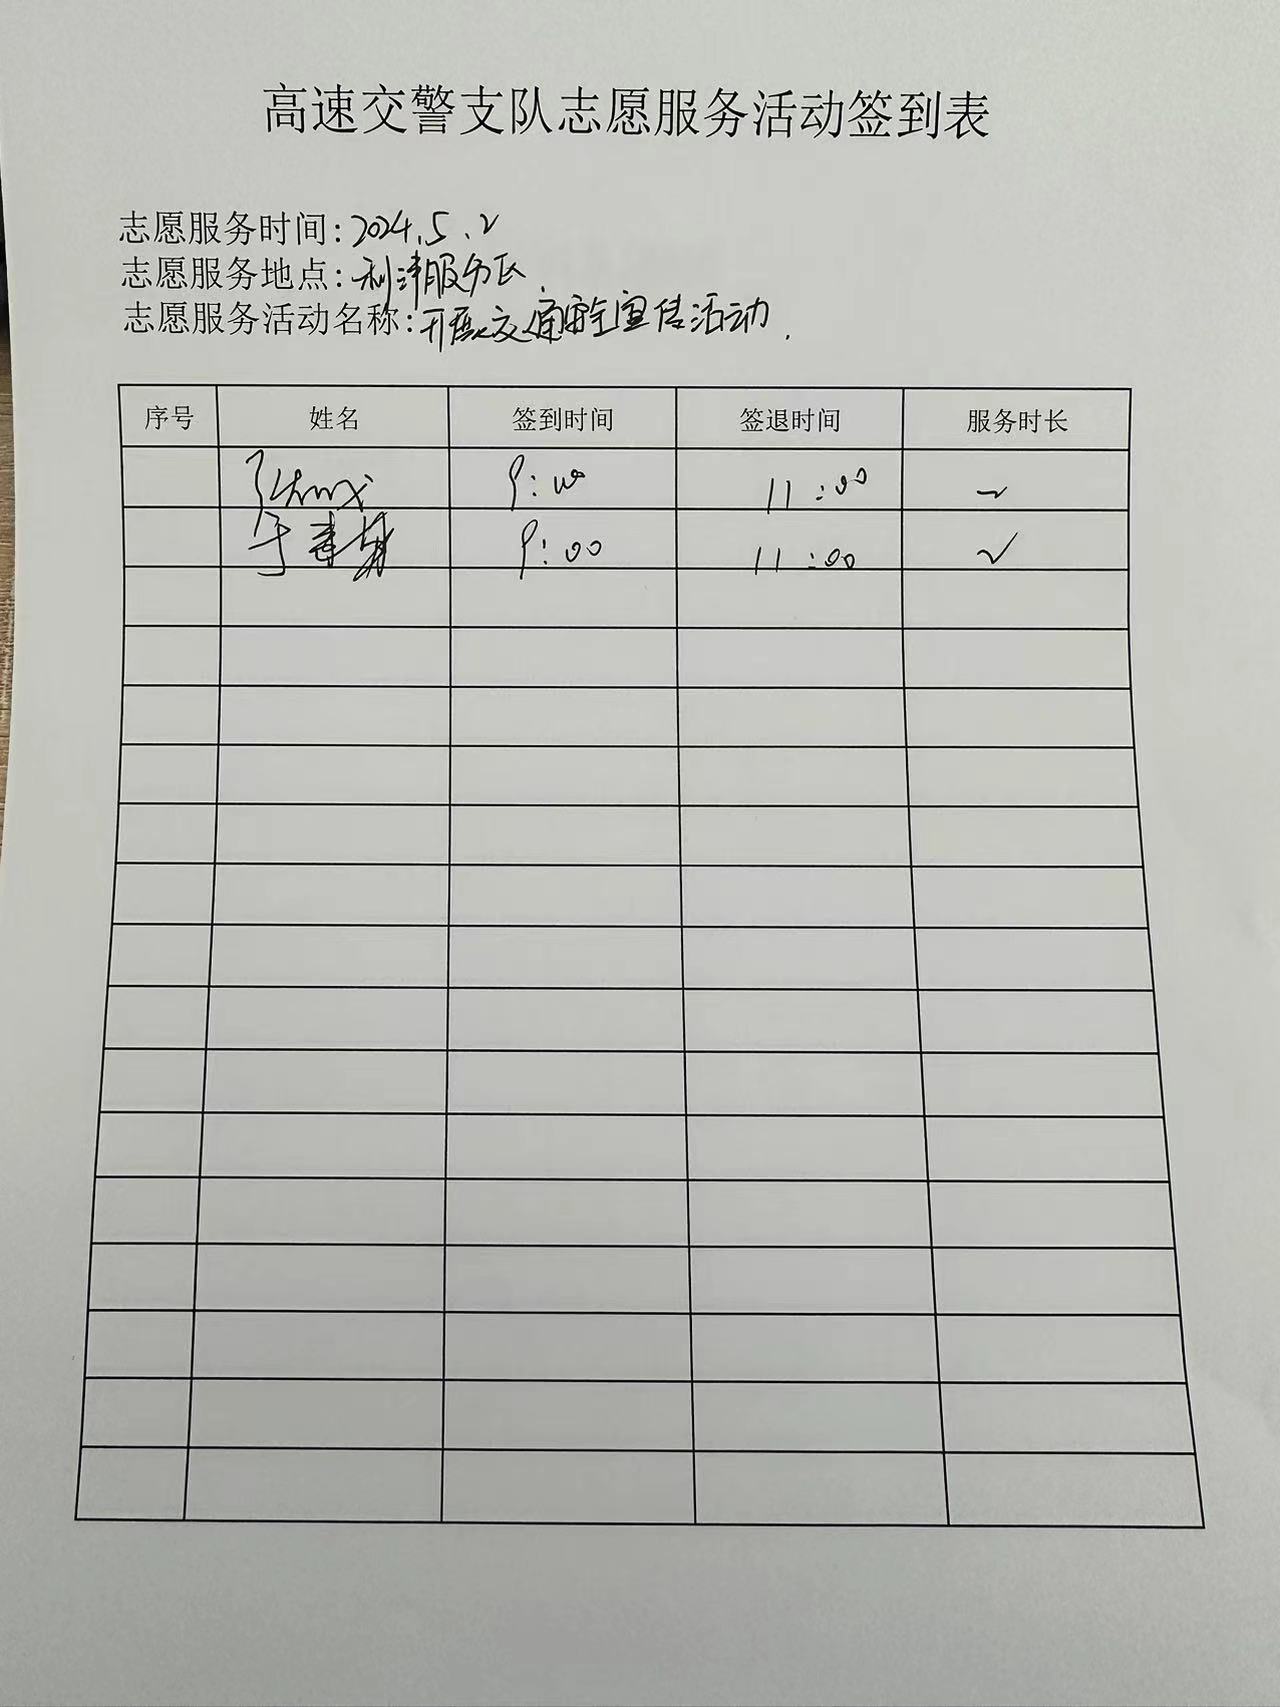 高速交警支队志愿服务活动签到表
志愿服务时间:2024.5.2
志愿服务地点:利津服务区
志愿服务活动名称:开展交通安全宣传活动.
序号 姓名 签到时间 签退时间 服务时长
9:00 11:00
于 9:00 11:00 ✓